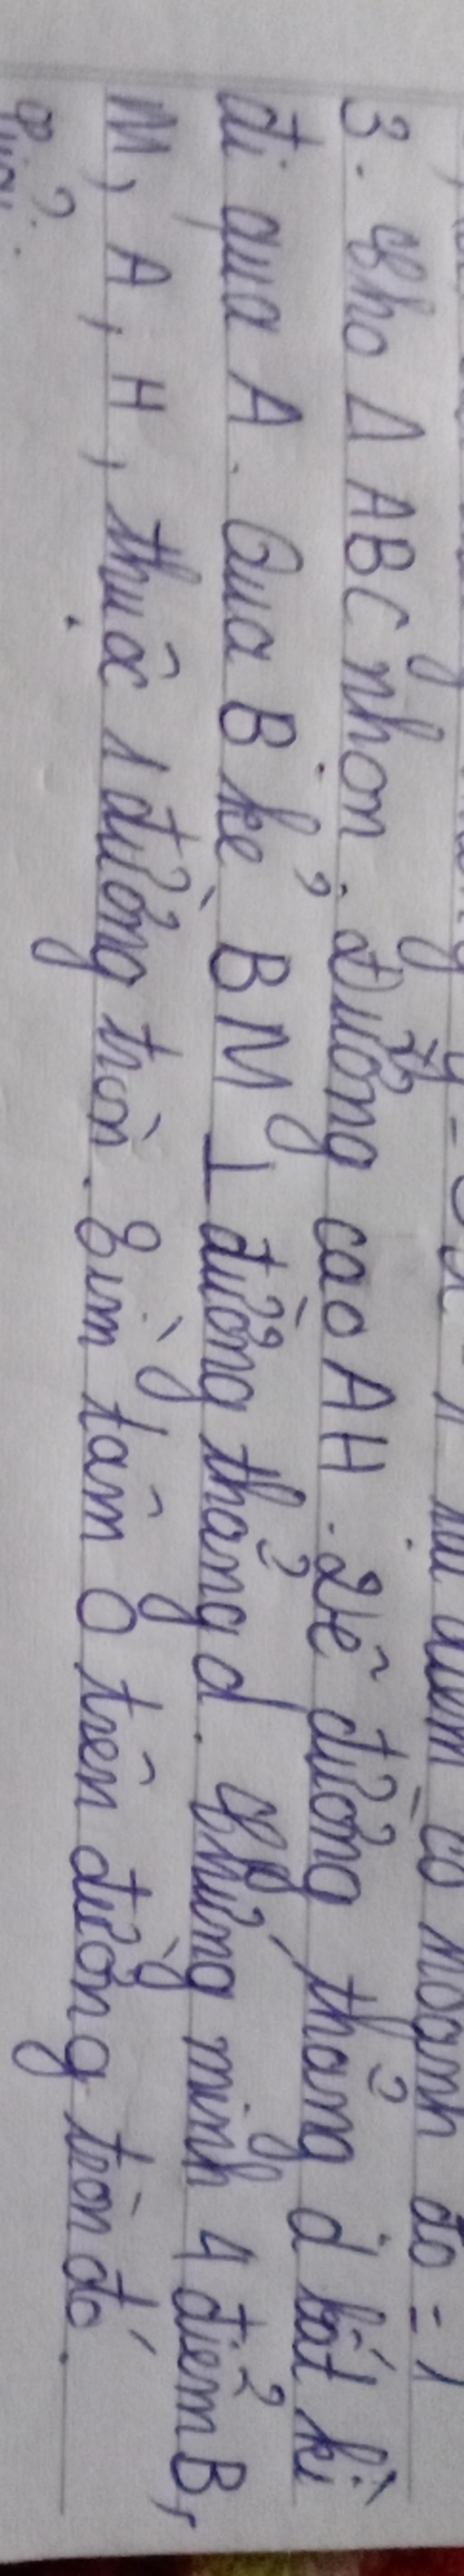 y = 3x - 1 tìm điểm có hoành độ = 1
3. Cho Δ ABC nhọn. Đường cao AH. Vẽ đường thẳng d bất kì
đi qua A. Qua B kẻ BM ⊥ đường thẳng d. Chứng minh 4 điểm B,
M, A, H, thuộc 1 đường tròn. Tìm tâm O trên đường tròn đó.